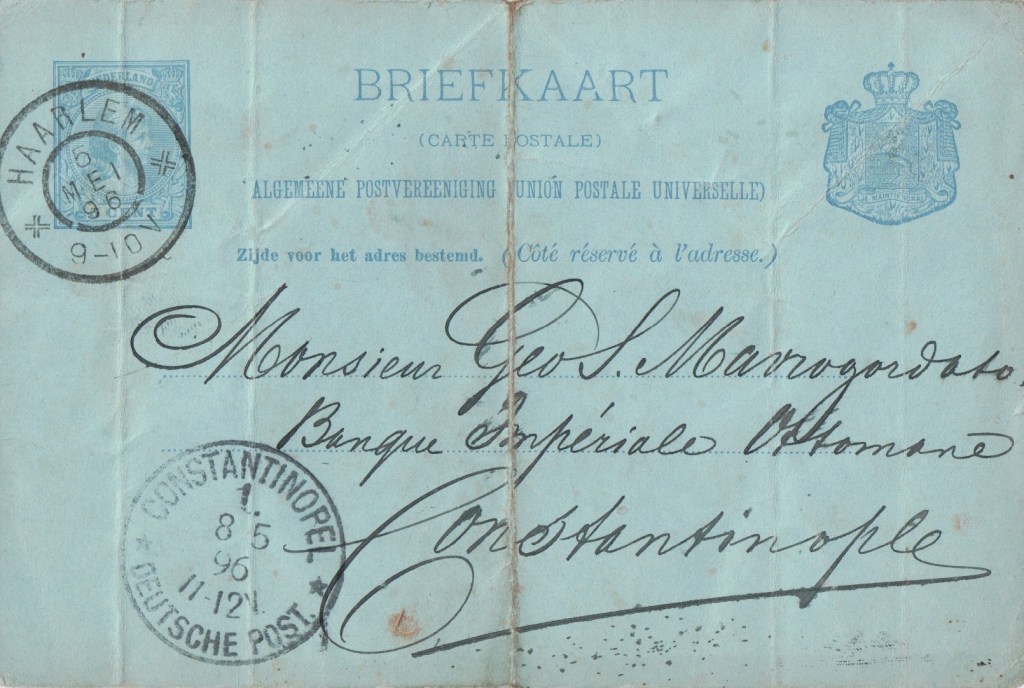 NEDERLAND
HAARLEM
5
MEI
96
9-10V
BRIEFKAART
(CARTE POSTALE)
ALGEMEENE POSTVEREENIGING (UNION POSTALE UNIVERSELLE)
JE MAINTIENDRAI
Zijde voor het adres bestemd. (Côté réservé à l'adresse.)
Monsieur Geo S. Mavrogordato.
Banque Impériale Ottomane
Constantinople
CONSTANTINOPEL
1.
8 5
96
11-12V.
DEUTSCHE POST.